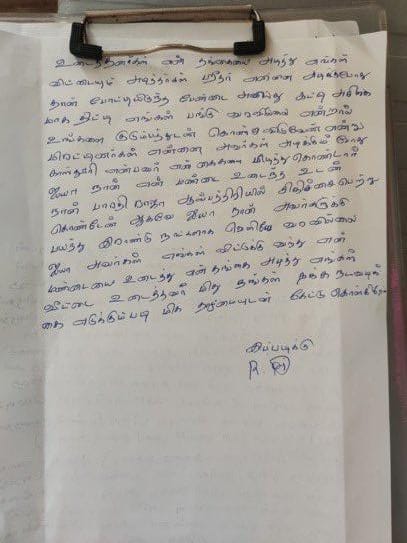 உடைத்தனர்கள் என் தங்கையை அடித்து எங்கள்
வீட்டையும் அடித்தர்கள் ஸ்ரீதர் என்னை அடிக்கபோது
தான் போட்டியிருந்த பேண்டை அவிழ்த்து காட்டி அசிங்க
மாக திட்டி எங்கள் பங்கு வரவில்லை என்றால்
உங்களை குடும்பத்துடன் கொண்டுவிடுவேன் என்று
மிரட்டினார்கள் என்னை அவர்கள் அடிக்கும் போது
என்பவர் என் கைகளை பிடித்து கொண்டார்
ஐயா நான் என் மண்டை உடைந்த உடன்
நான் பாரதி ராஜா ஆஸ்பத்திரியில் சிகிச்சை பெற்று
கொண்டேன் ஆகவே ஐயா நான் அவர்களுக்கு
பயந்து இரண்டு நாட்களாக வெளியே வரவில்லை
ஐயா அவர்கள் எங்கள் வீட்டுக்கு வந்து என்
மண்டையை உடைத்து என் தங்கை அடித்து எங்கள்
வீட்டை உடைத்தவர் மீது தாங்கள் தக்க நடவடிக்
கை எடுக்கும்படி மிக தாழ்மையுடன் கேட்டு கொள்கிறேன்
இப்படிக்கு
R.